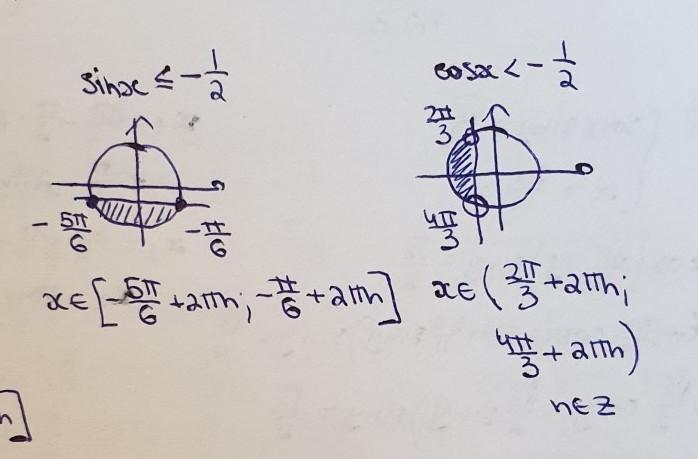 sinx ≤ -1/2
-5π/6
-π/6
x∈[-5π/6+2πn; -π/6+2πn]
cosx < -1/2
2π/3
4π/3
x∈(2π/3+2πn;
4π/3+2πn)
n∈Z
n]